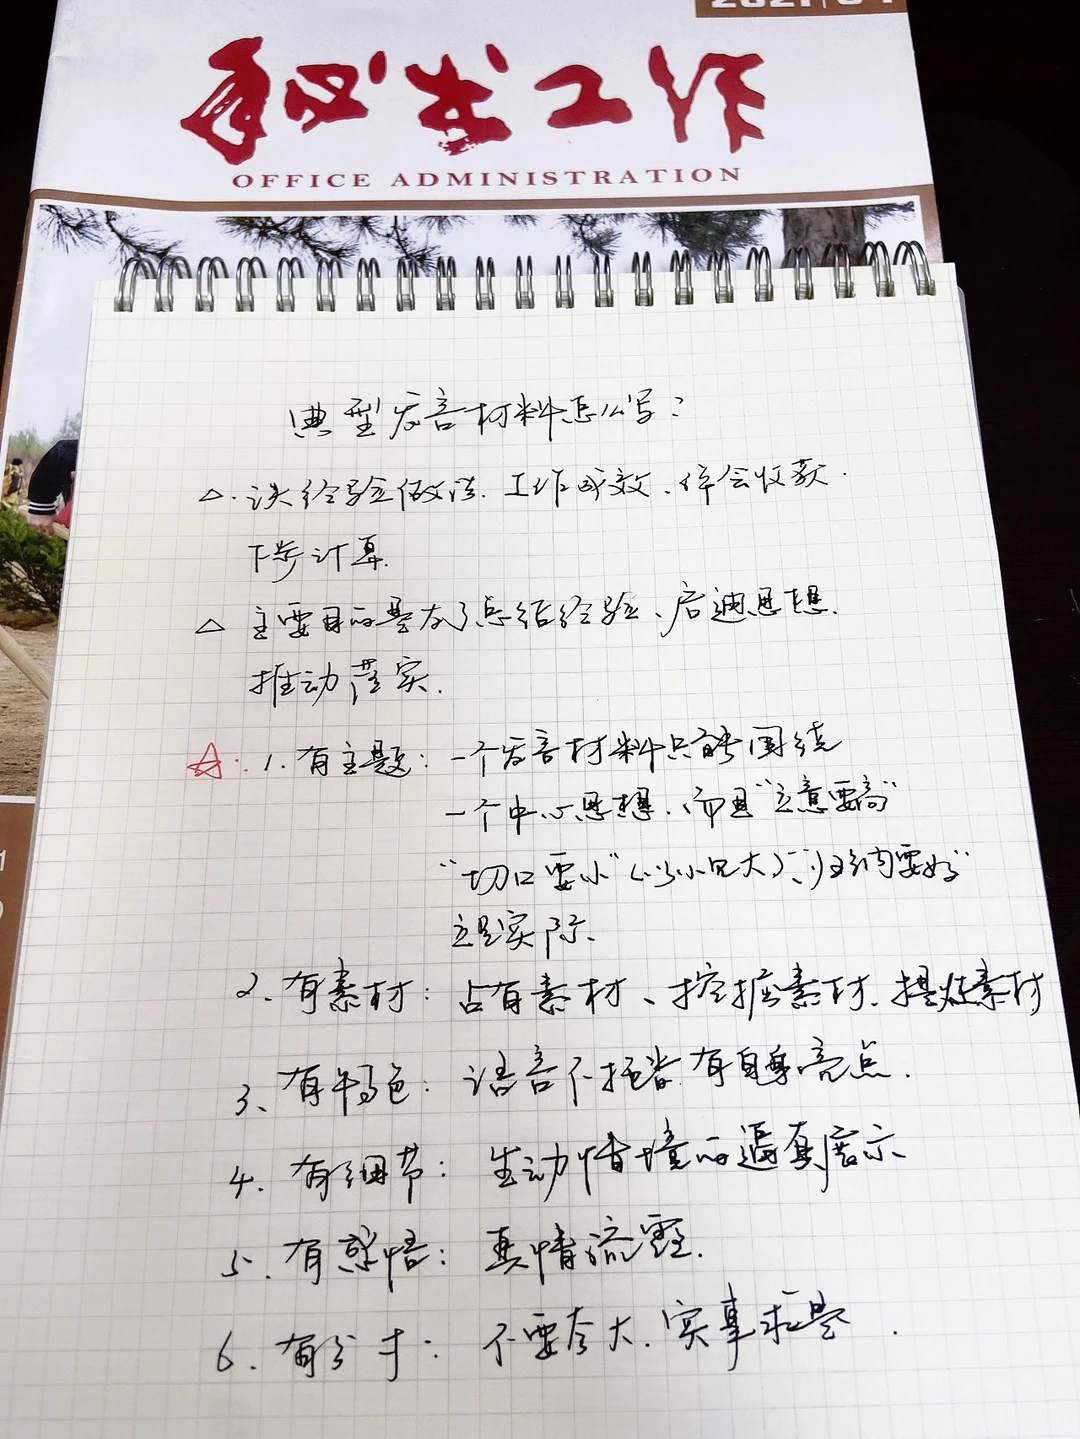 2021/04
秘书工作
OFFICE ADMINISTRATION
典型发言材料怎么写?
△.谈经验做法、工作成效、体会收获.
下步计算.
△ 主要目的是为了总结经验、启迪思想.
推动落实.
☆:1.有主题:一个发言材料只能围绕
一个中心思想.而且"立意要高"
"切口要小"(以小见大)、"归纳要好"
立足实际、
2、有素材:占有素材、挖掘素材、提炼素材
3、有特色:语言不拒沓.有自身亮点.
4.有细节:生动情境的逼真展示、
5.有感悟:真情流露.
6.有分寸:不要夸大.实事求是.